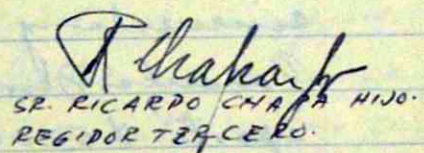 R Chapa Jr
SR. RICARDO CHAPA HIJO.
REGIDOR TERCERO.